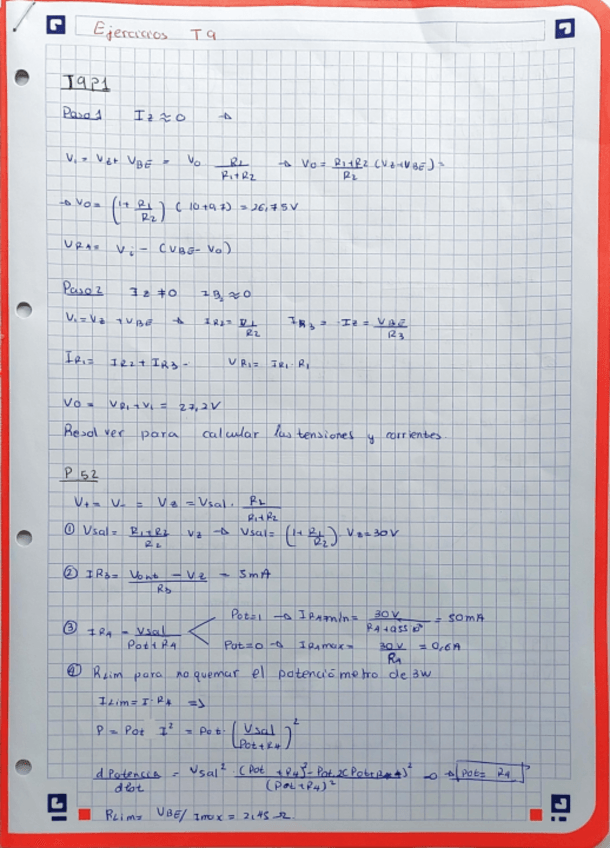 Ejercicios T9
T9P1
Paso 1 Iz ≈ 0 →
V₁ = Vz + VBE = Vo R2/(R1+R2) → Vo = (R1+R2)/R2 (Vz+VBE) =
→ Vo = (1 + R1/R2) (10+0,7) = 26,75V
VRA= Vi - (VBE- Vo)
Paso 2 Iz ≠ 0 IB2 ≈ 0
V₁ = Vz + VBE → IR2= V1/R2 IR3 = Iz = VBE/R3
IR1= IR2 + IR3 - VR1= IR1 · R1
Vo = VR1 + V1 = 27,2V
Resolver para calcular las tensiones y corrientes.
P 52
V+ = V- = Vz = Vsal · R2/(R1+R2)
① Vsal= (R1+R2)/R2 Vz → Vsal= (1+ R1/R2) Vz=30V
② IR3= (Vont - Vz)/R3 = 5mA
Pot=1 → IR4min= 30V/ = 50mA
③ IR4 = Vsal/(Pot+R4)
Pot=0 → IR4max= 30V/R4 = 0,6A
④ RLim para no quemar el potenciómetro de 3W
ILim= I· R4 =>
P = Pot I² = Pot· (Vsal/(Pot+R4))²
d Potencia/dPot = Vsal² → Pot= R4
RLim= VBE/ Imax = 2,45 Ω